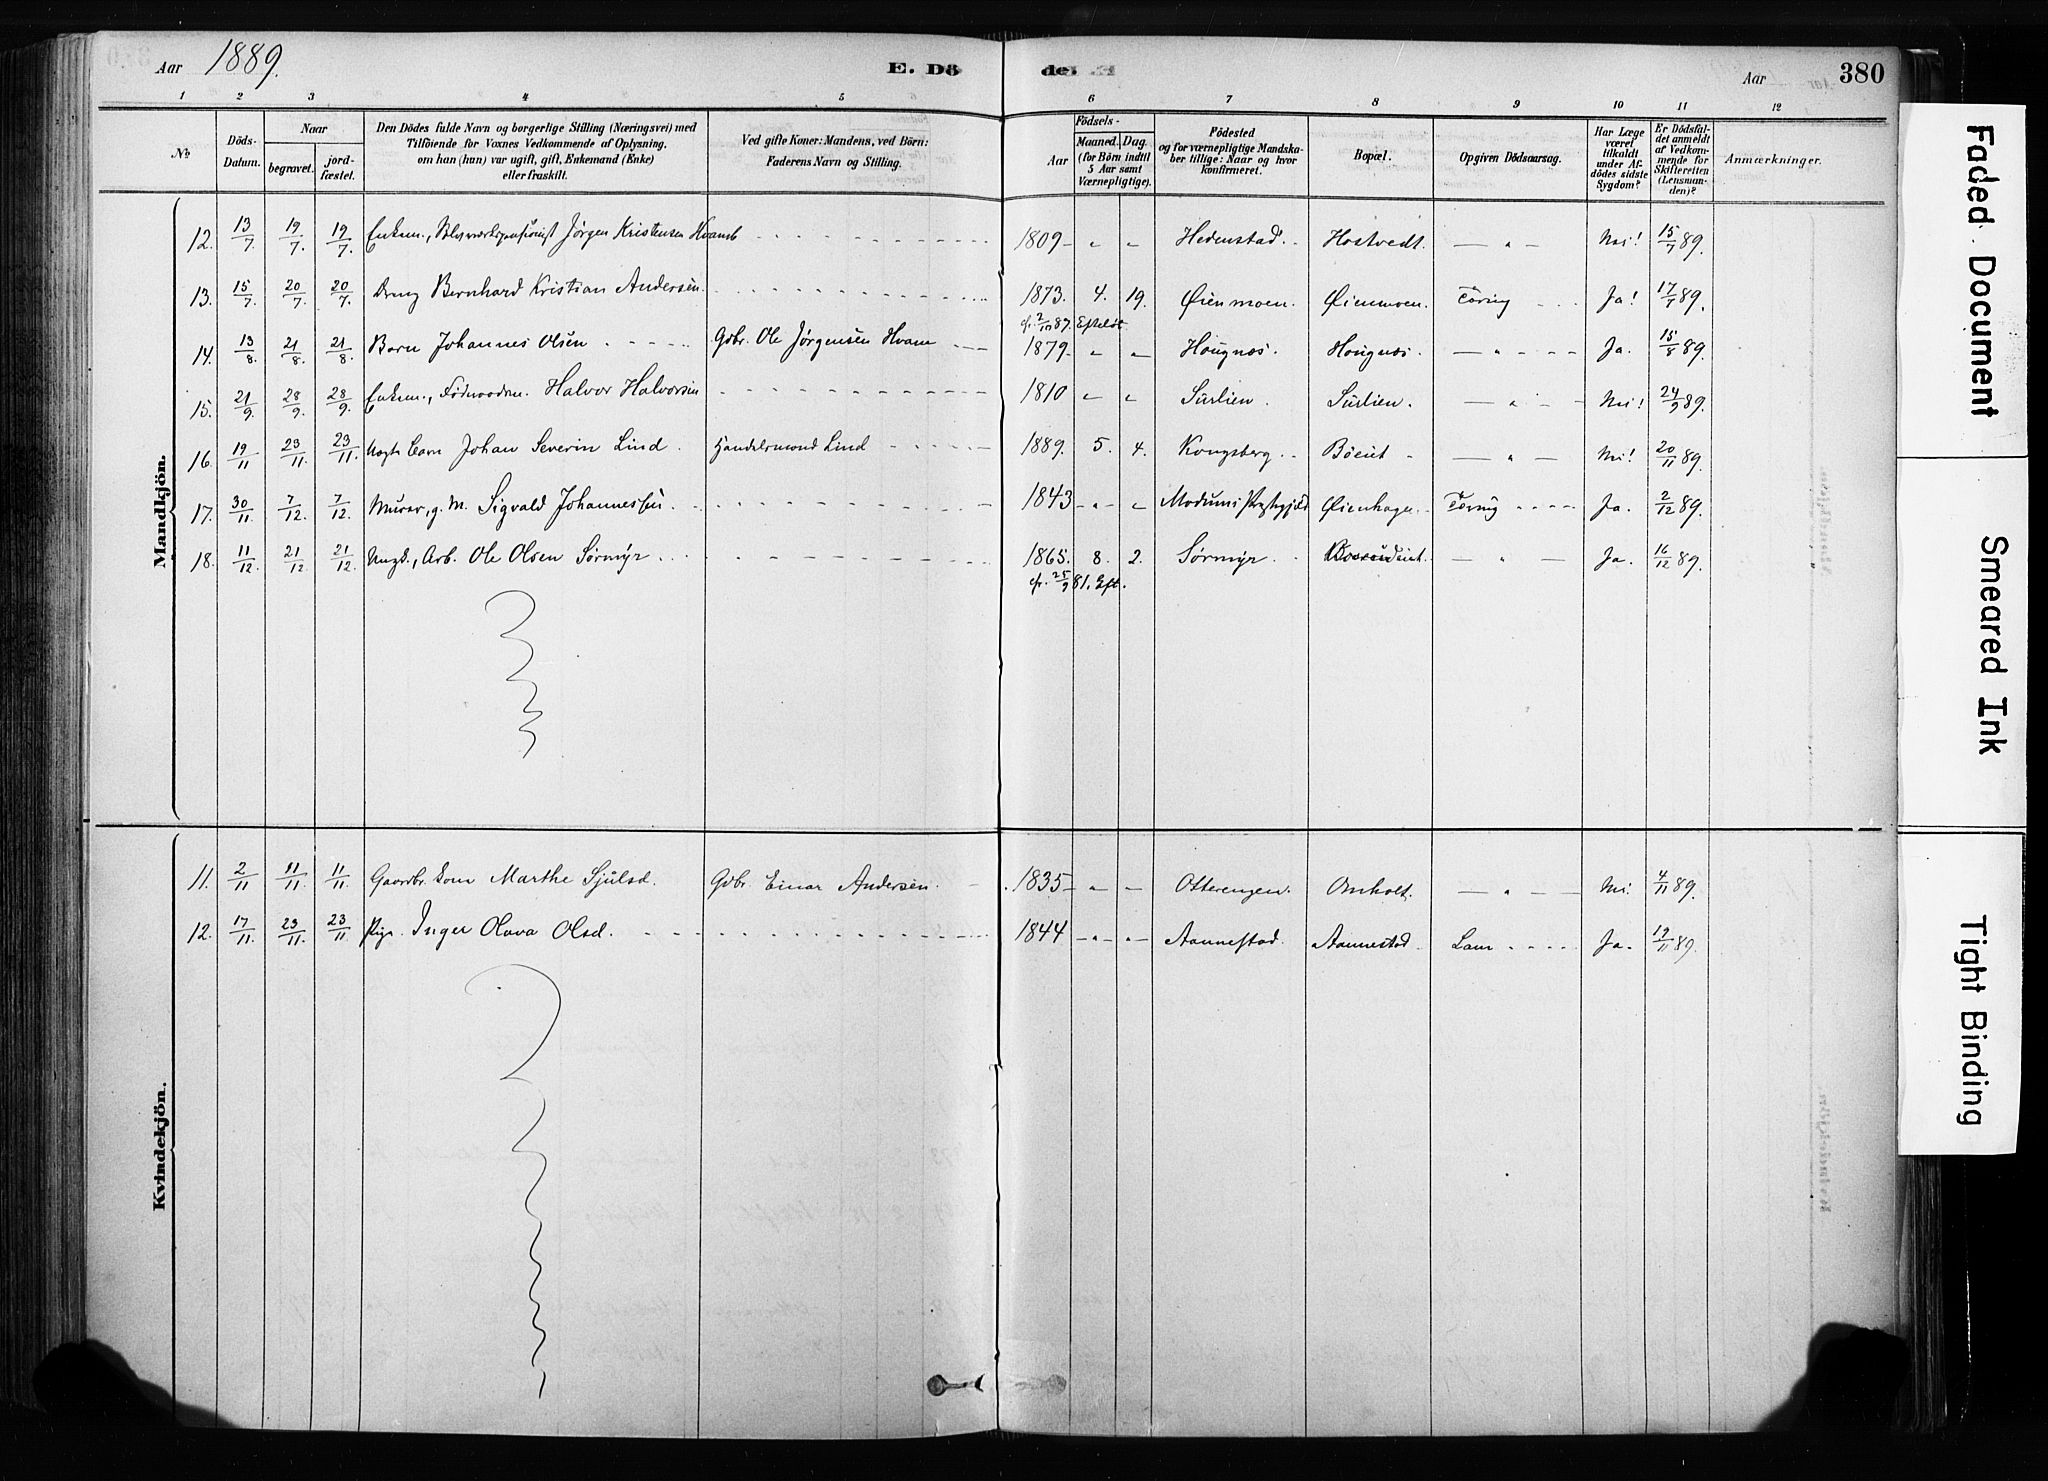 Aar 1889. E. Dö de: Aar 380
1 2 3 4 5 6 7 8 9 10 11 12
No Döds-Datum. Naar begravet. jord-fæstet. Den Dödes fulde Navn og borgerlige Stilling (Næringsvei) med Tilföiende for Voxnes Vedkommende af Oplysning, om han (hun) var ugift, gift, Enkemand (Enke) eller fraskilt. Ved gifte Koner: Mandens, ved Börn: Faderens Navn og Stilling. Födsels- Aar Maaned. Dag. (for Börn indtil 5 Aar samt Værnepligtige). Födested og for værnepligtige Mandskaber tillige: Naar og hvor konfirmeret. Bopæl. Opgiven Dödsaarsag. Har Læge været tilkaldt under Afdödes sidste Sygdom? Er Dödsfaldet anmeldt af Vedkommende for Skifteretten (Lensmanden)? Anmærkninger.
Mandkjön.
12. 13/7. 19/7. 19/7. Enkem., Jørgen Kristensen Hvamb 1809 - „ „ Hedenstad. Hostvedt. — „ — Nei! 15/7 89.
13. 15/7. 20/7. 20/7. Dreng Bernhard Kristian Andersen. 1873. 4. 19. Øienmoen. Øienmoen. Tæring Ja! 17/7 89.
cfr. 2/10 87. Efteløt
14. 13/8. 21/8. 21/8. Barn Johannes Olsen Gdbr. Ole Jørgensen Hvam 1879 - „ „ Hougnæs. Hougnæs. — „ — Ja. 15/8 89.
15. 21/9. 28/9. 28/9. Enkem., Halvor Halvorsen 1810 „ „ Surlien. Surlien. — „ — Nei! 24/9 89.
16. 19/11 23/11. 23/11. Barn Johan Severin Lind. Handelsmand Lind 1889. 5. 4. Kongsberg. — „ — Nei! 20/11 89.
17. 30/11. 7/12. 7/12. Murer, g. M. Sigvald Johannessen. 1843 - „ - „ Modums Prestegjeld Øienhagen. Tæring Ja. 2/12 89.
18. 11/12. 21/12. 21/12. Ungk., Arb. Ole Olsen Sørmyr. 1865. 8. 2. Sørmyr. — „ — Ja. 16/12 89.
cfr. 25/9 81. Eft.
Kvindekjön.
11. 2/11 11/11. 11/11. Gaardbr. kone Marthe Sjulsd. Gdbr. Einar Andersen. 1835 - „ „ Otterengen. Omholt. — „ — Nei. 4/11 89.
12. 17/11. 23/11. 23/11 Pige. Inger Olava Olsd. 1844 - „ - „ Aannestad. Aannestad. Lam Ja. 19/11 89.
Faded Document
Smeared Ink
Tight Binding